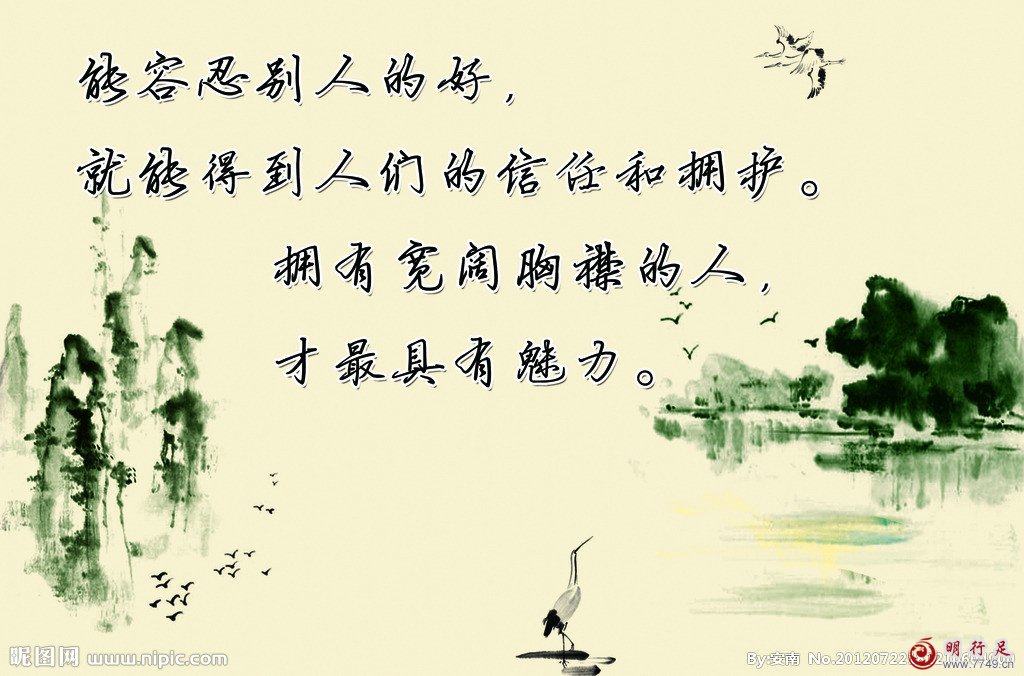 能容忍别人的好，
就能得到人们的信任和拥护。
拥有宽阔胸襟的人，
才最具有魅力。
昵图网 www.nipic.com
By:安南 No.20120722
明行足
www.7749.cn